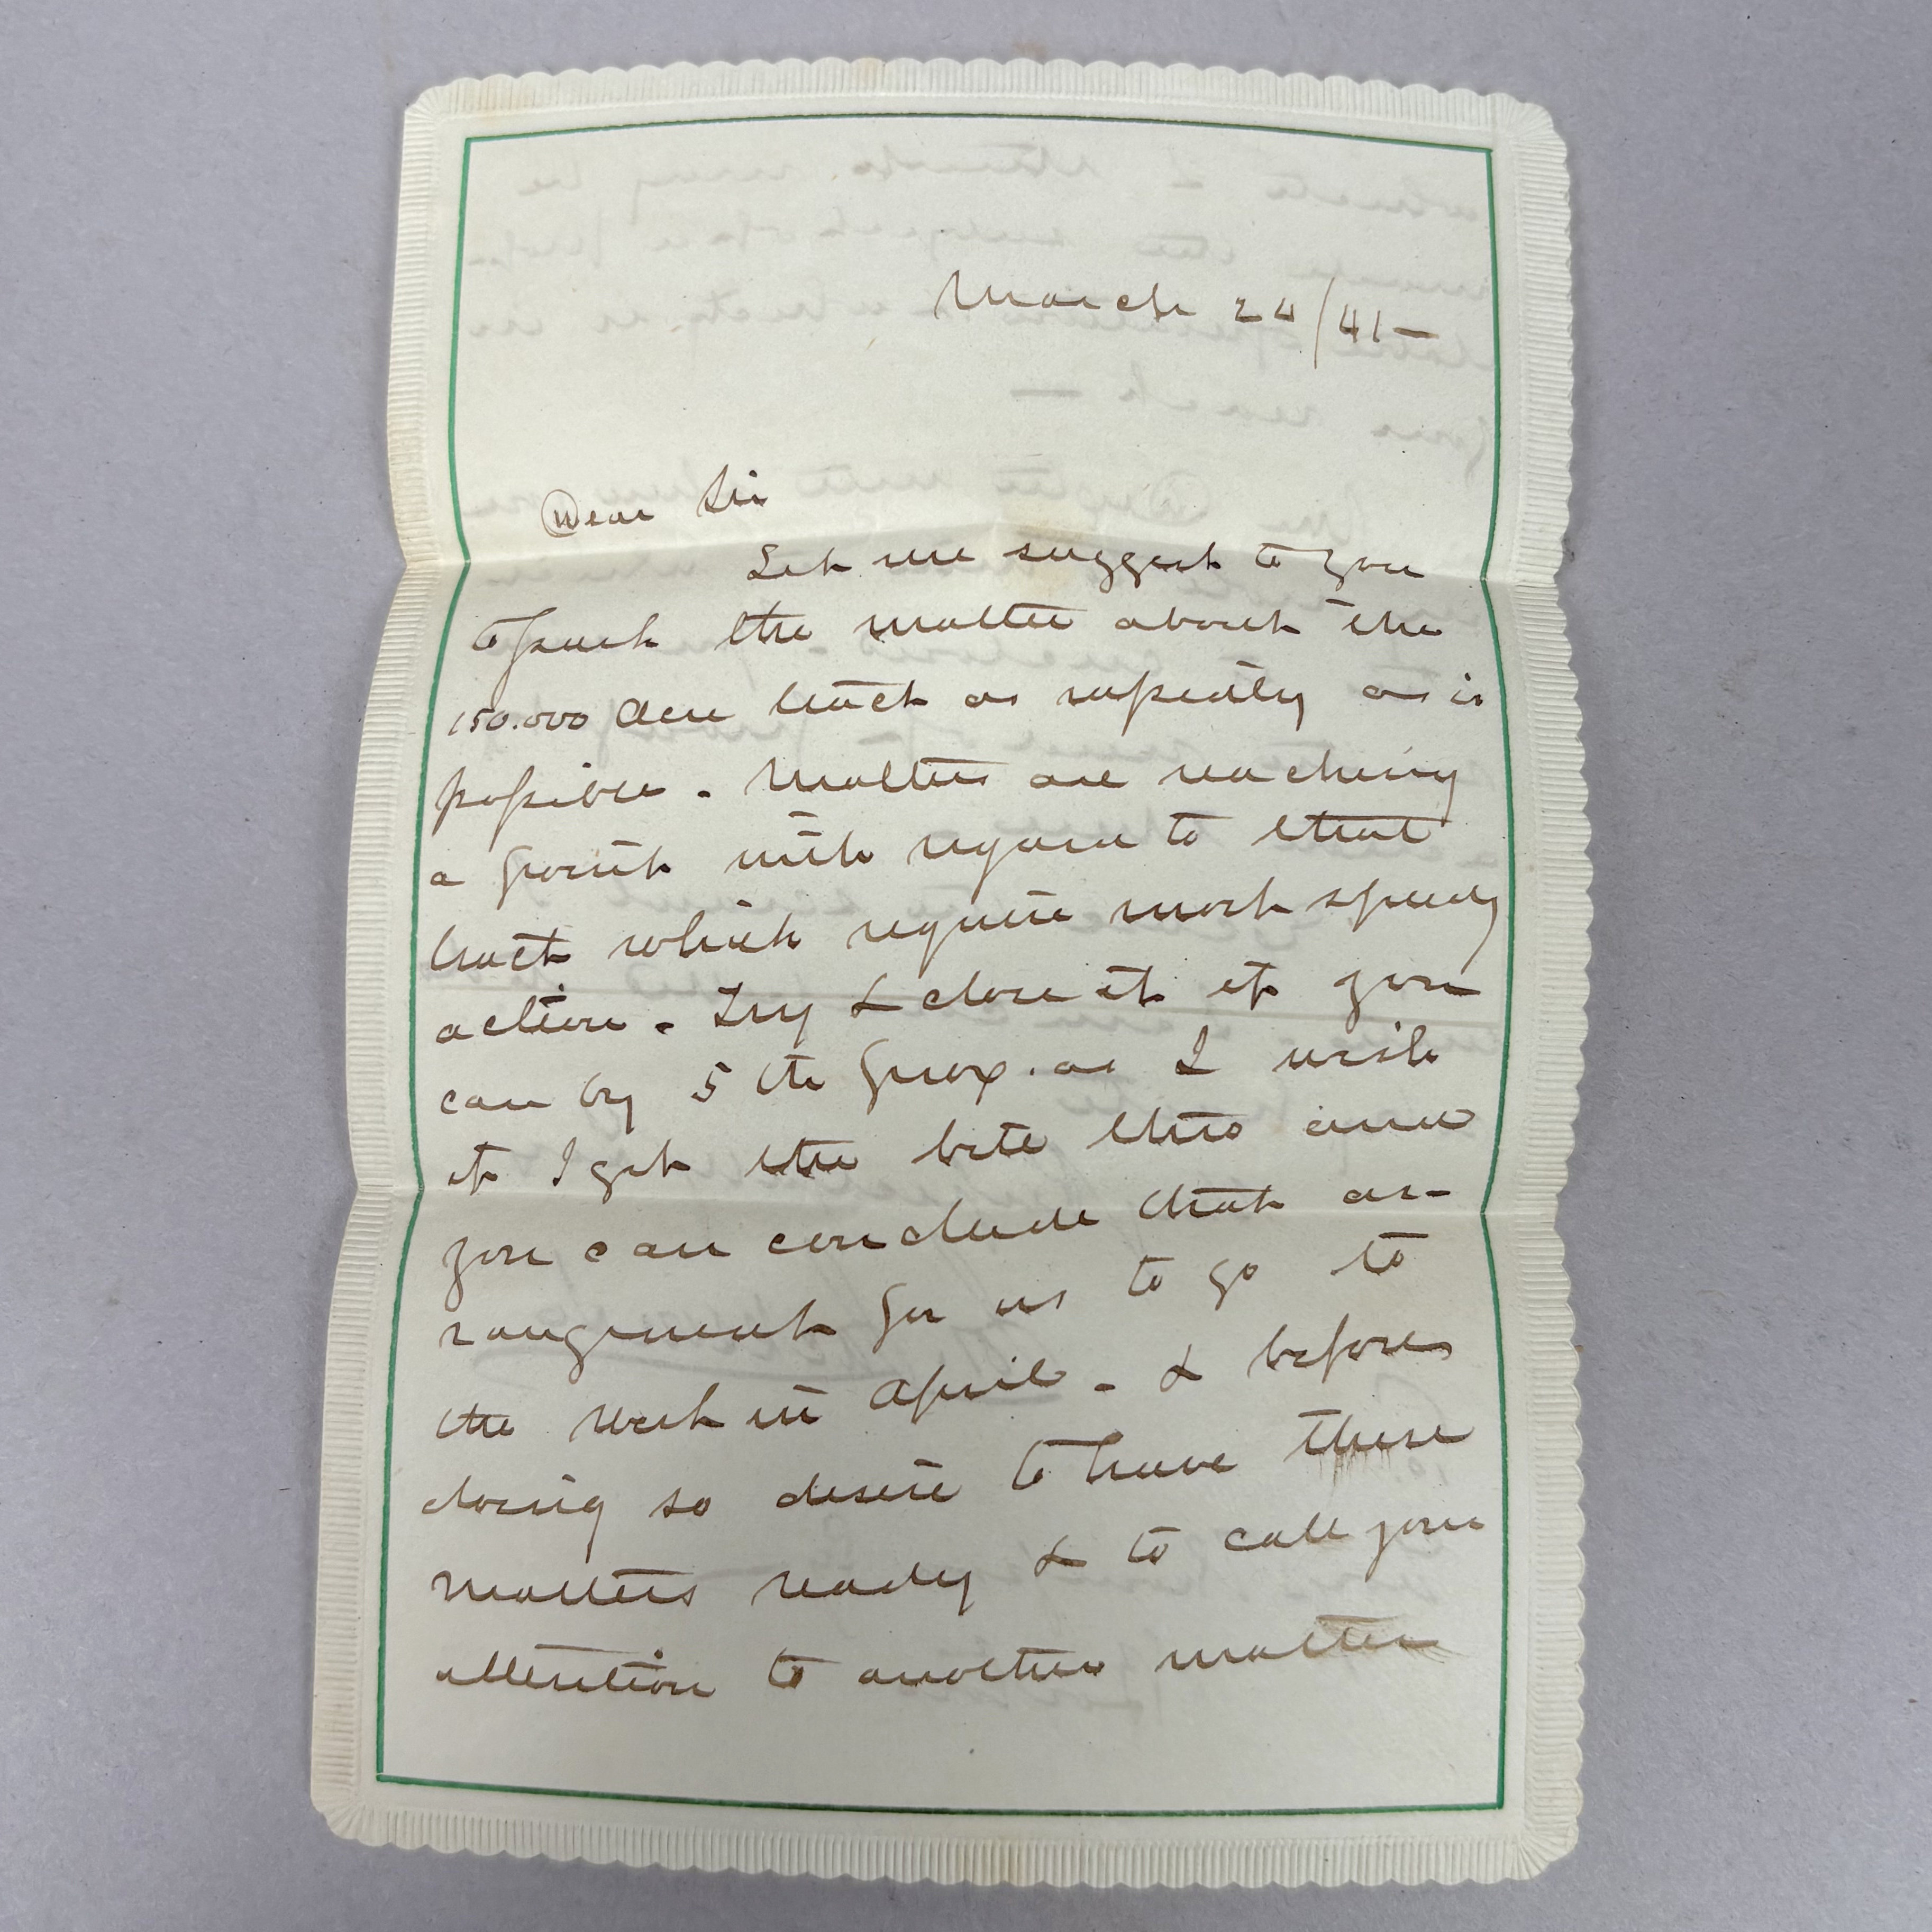 March 24/41-
Dear Sir
Let me suggest to you
to push the matter about the
150.000 Acre tract as rapidly as is
possible. Matters are reaching
a point with regard to that
tract which require most speedy
action. Try & close it if you
can by 5th prox. as I wish
if I get the title this and
you can conclude that ar-
rangement for us to go to
the West in April. & before
doing so desire to have these
matters ready & to call your
attention to another matter